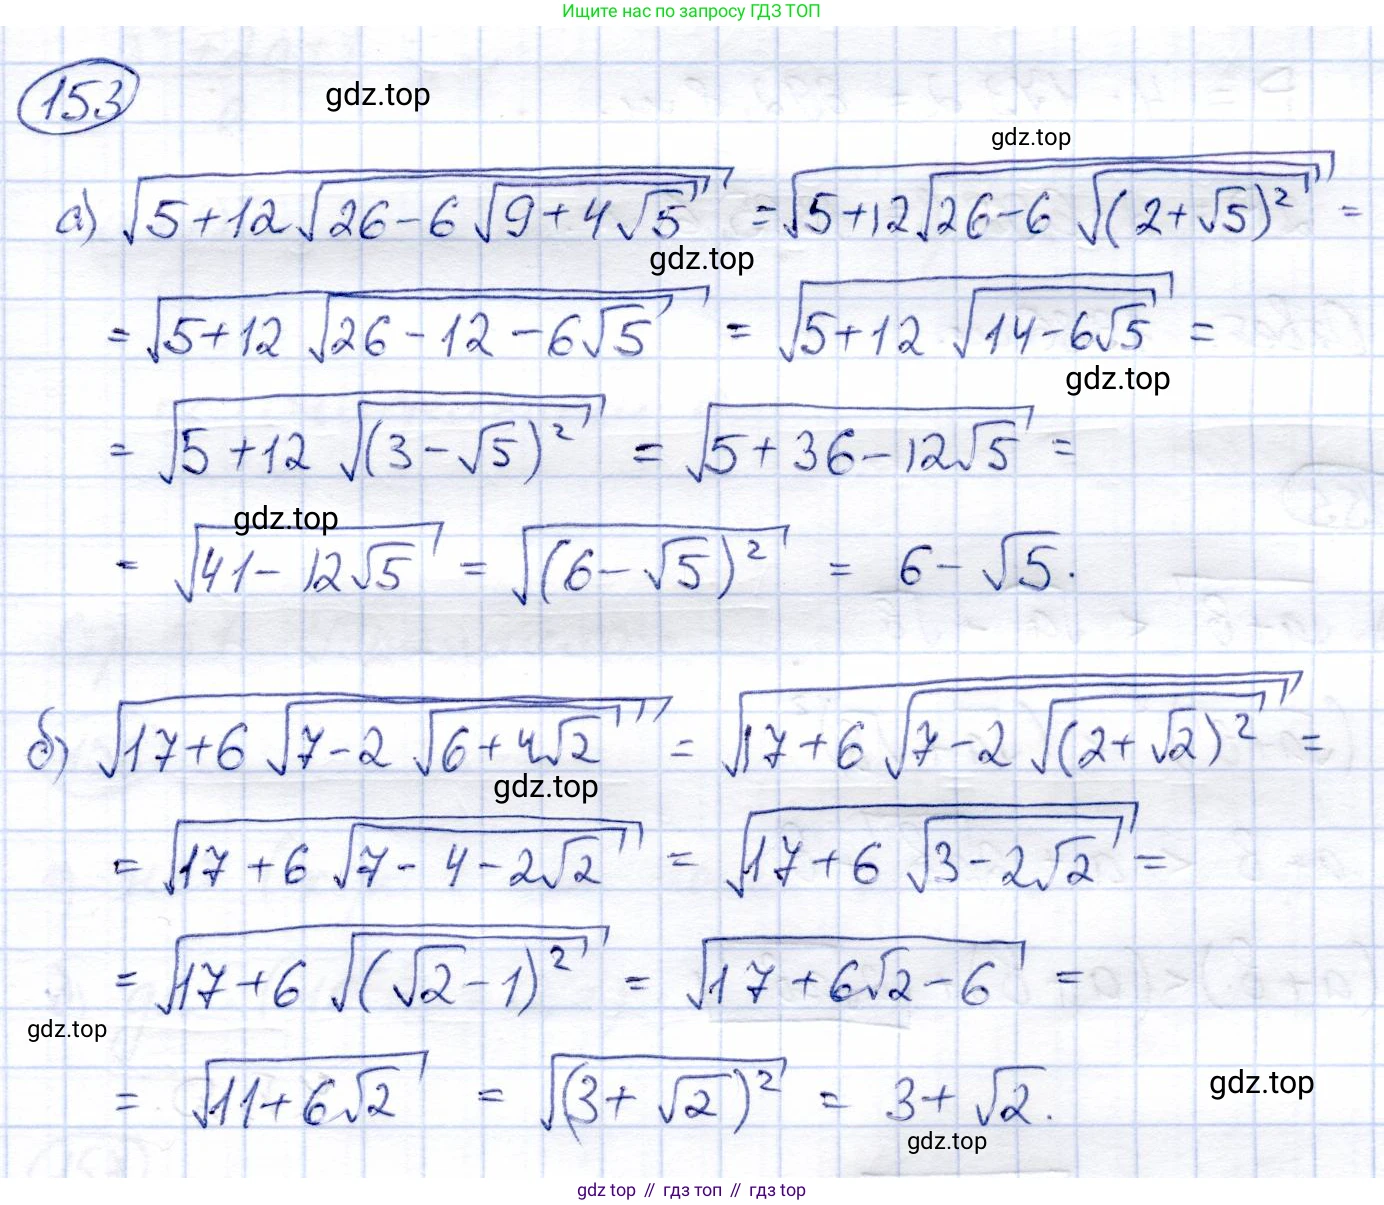 Ищите нас по запросу ГДЗ ТОП
153
gdz.top
gdz.top
а) √(5+12√(26−6√(9+4√5))) = √(5+12√(26−6√((2+√5)²))) =
gdz.top
= √(5+12√(26−12−6√5)) = √(5+12√(14−6√5)) =
gdz.top
= √(5+12√((3−√5)²)) = √(5+36−12√5) =
gdz.top
= √(41−12√5) = √((6−√5)²) = 6−√5.
б) √(17+6√(7−2√(6+4√2))) = √(17+6√(7−2√((2+√2)²))) =
gdz.top
= √(17+6√(7−4−2√2)) = √(17+6√(3−2√2)) =
= √(17+6√((√2−1)²)) = √(17+6√2−6) =
gdz.top
= √(11+6√2) = √((3+√2)²) = 3+√2.
gdz.top
gdz.top
gdz top // гдз топ // гдз top